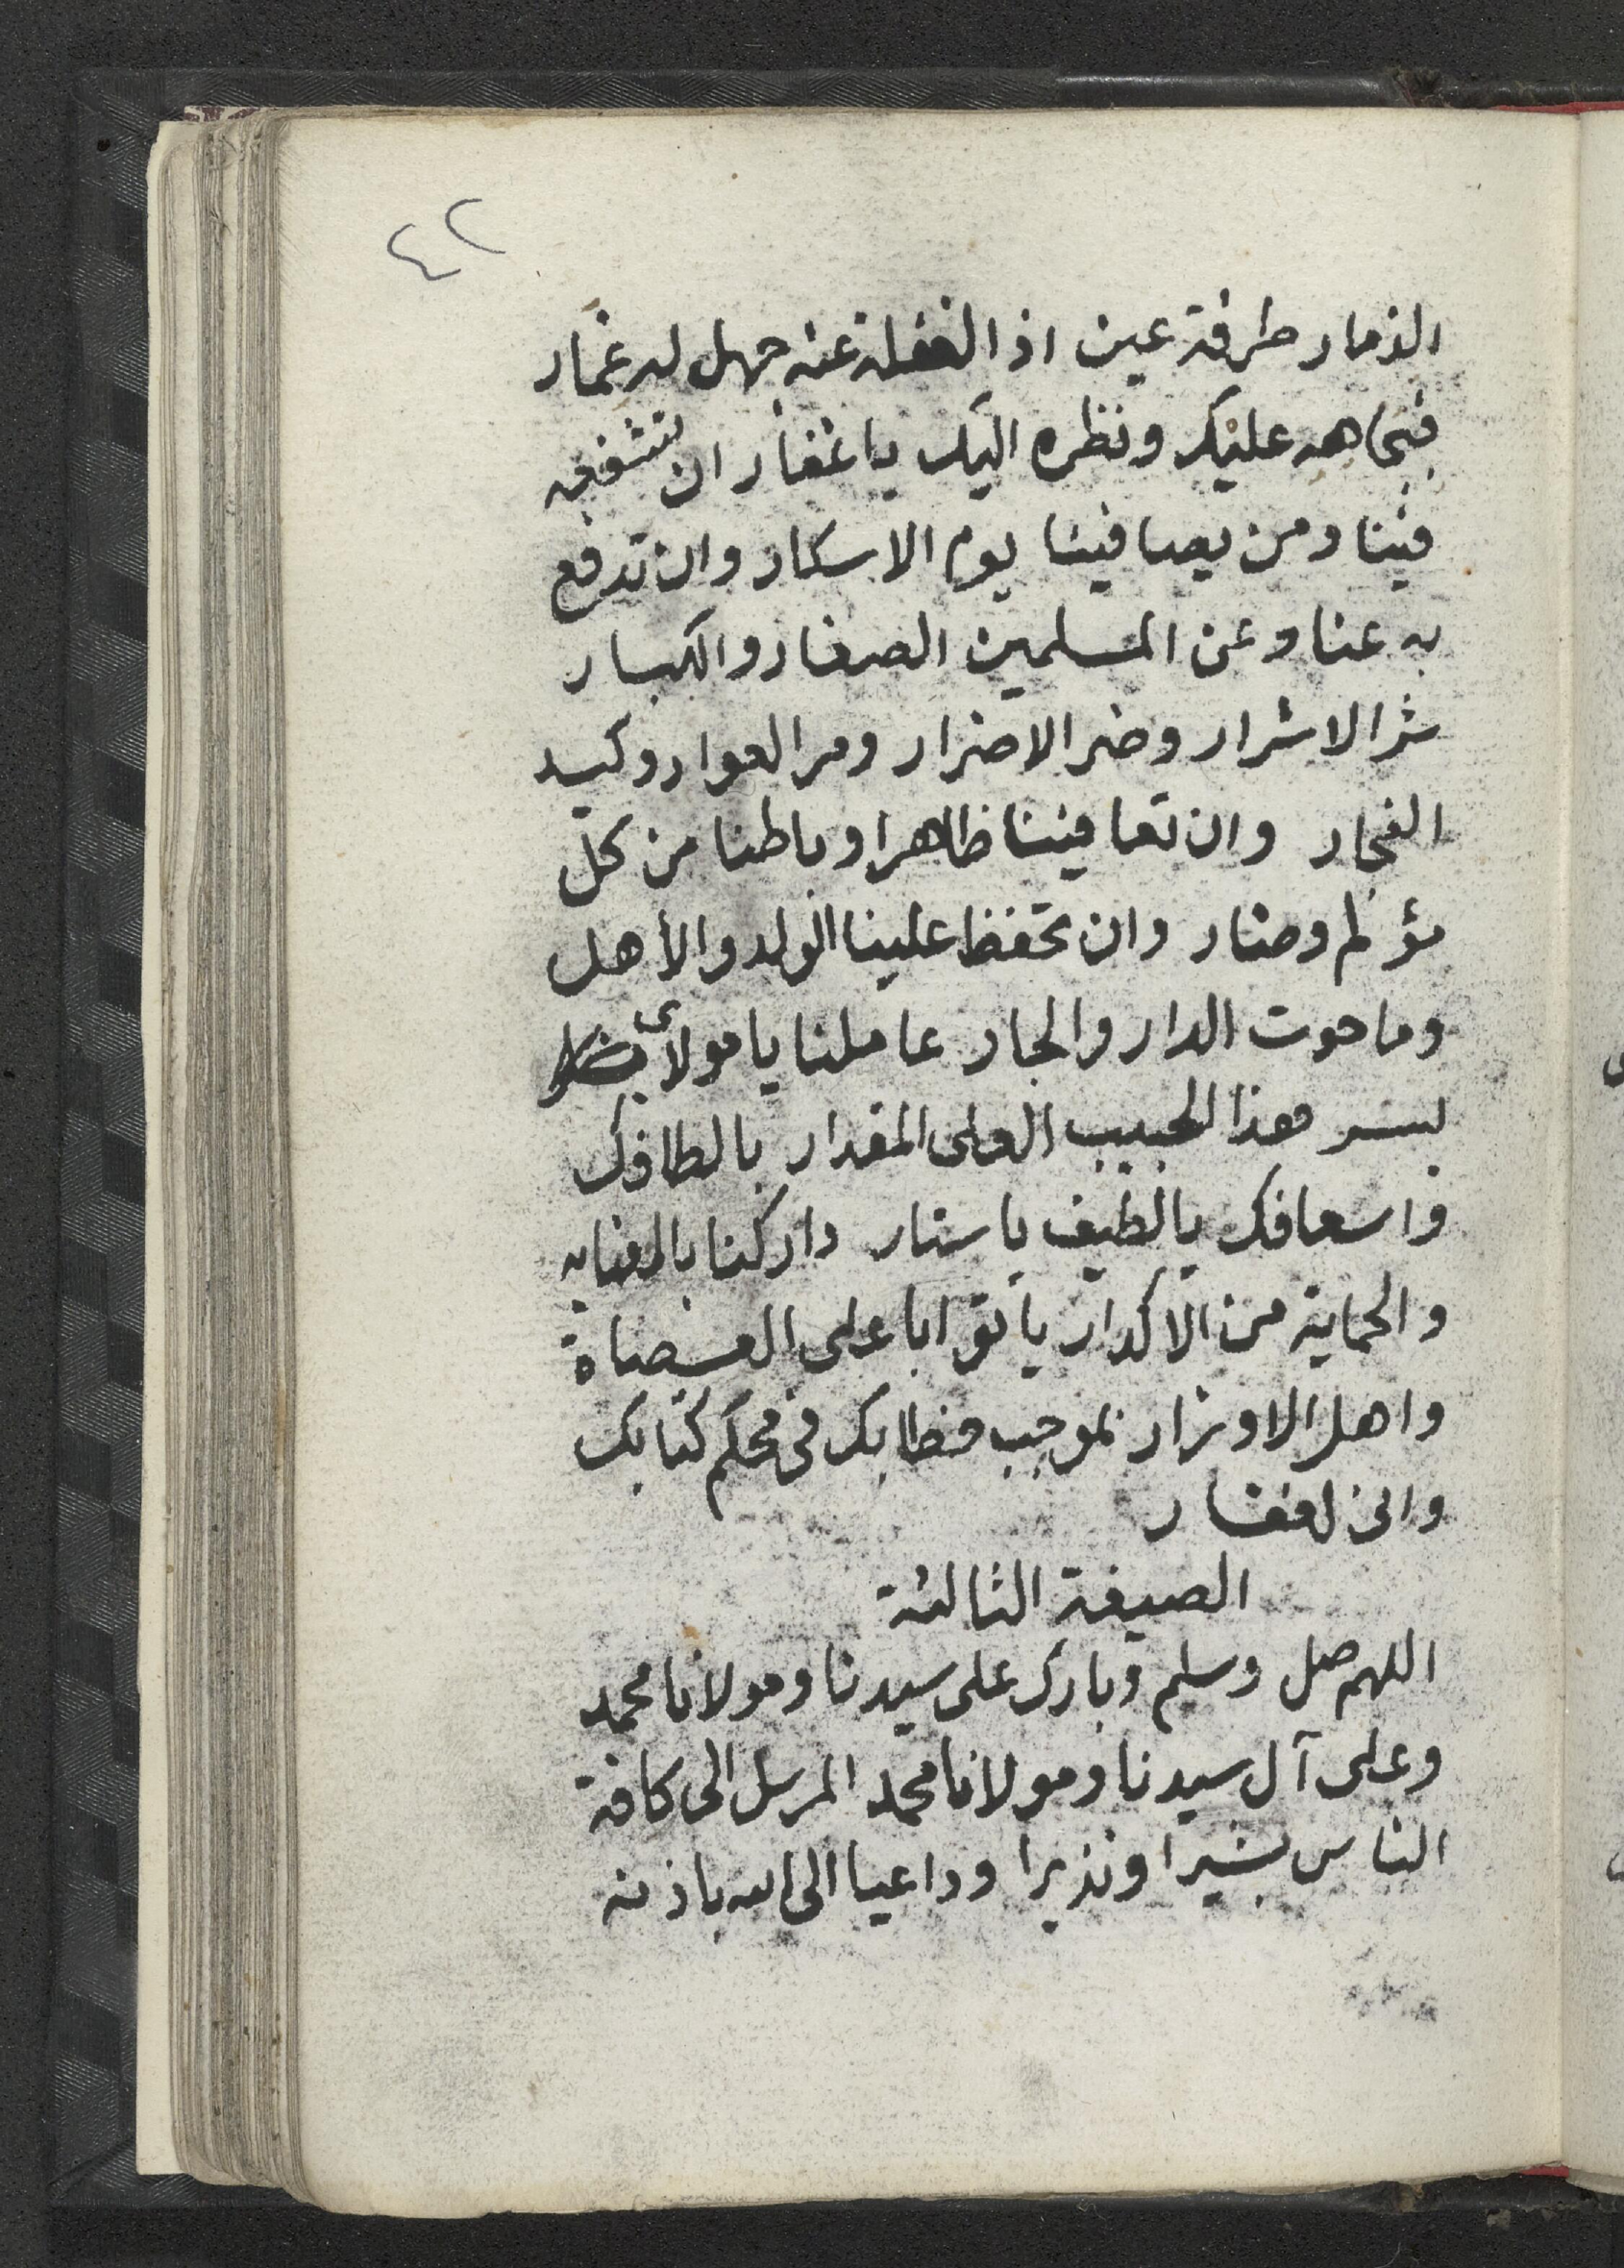 ٤٢
الذمار طرفة عين اذ الغفلة عنه جهل له غمار
فبجاهه عليك ونظره اليك يا غفار ان تشفعه
فينا ومن يصافينا يوم الاسكار وان تدفع
به عنا وعن المسلمين الصغار والكبار
شر الاشرار وضر الاضرار ومر العوار وكيد
الفجار وان تعافينا ظاهرا وباطنا من كل
مؤلم وضار وان تحفظ علينا الولد والأهل
وما حوت الدار والجار عاملنا يا مولاى
بسر هذا الحبيب العلى المقدار بالطافك
واسعافك يا لطيف يا ستار داركنا بالعنايه
والحماية من الاكدار يا توابا على العصاة
واهل الاوزار بموجب خطابك فى محكم كتابك
وانى لغفار
الصيغة الثالثة
اللهم صل وسلم وبارك على سيدنا ومولانا محمد
وعلى آل سيدنا ومولانا محمد المرسل الى كافة
الناس بشيرا ونذيرا وداعيا الى الله باذنه